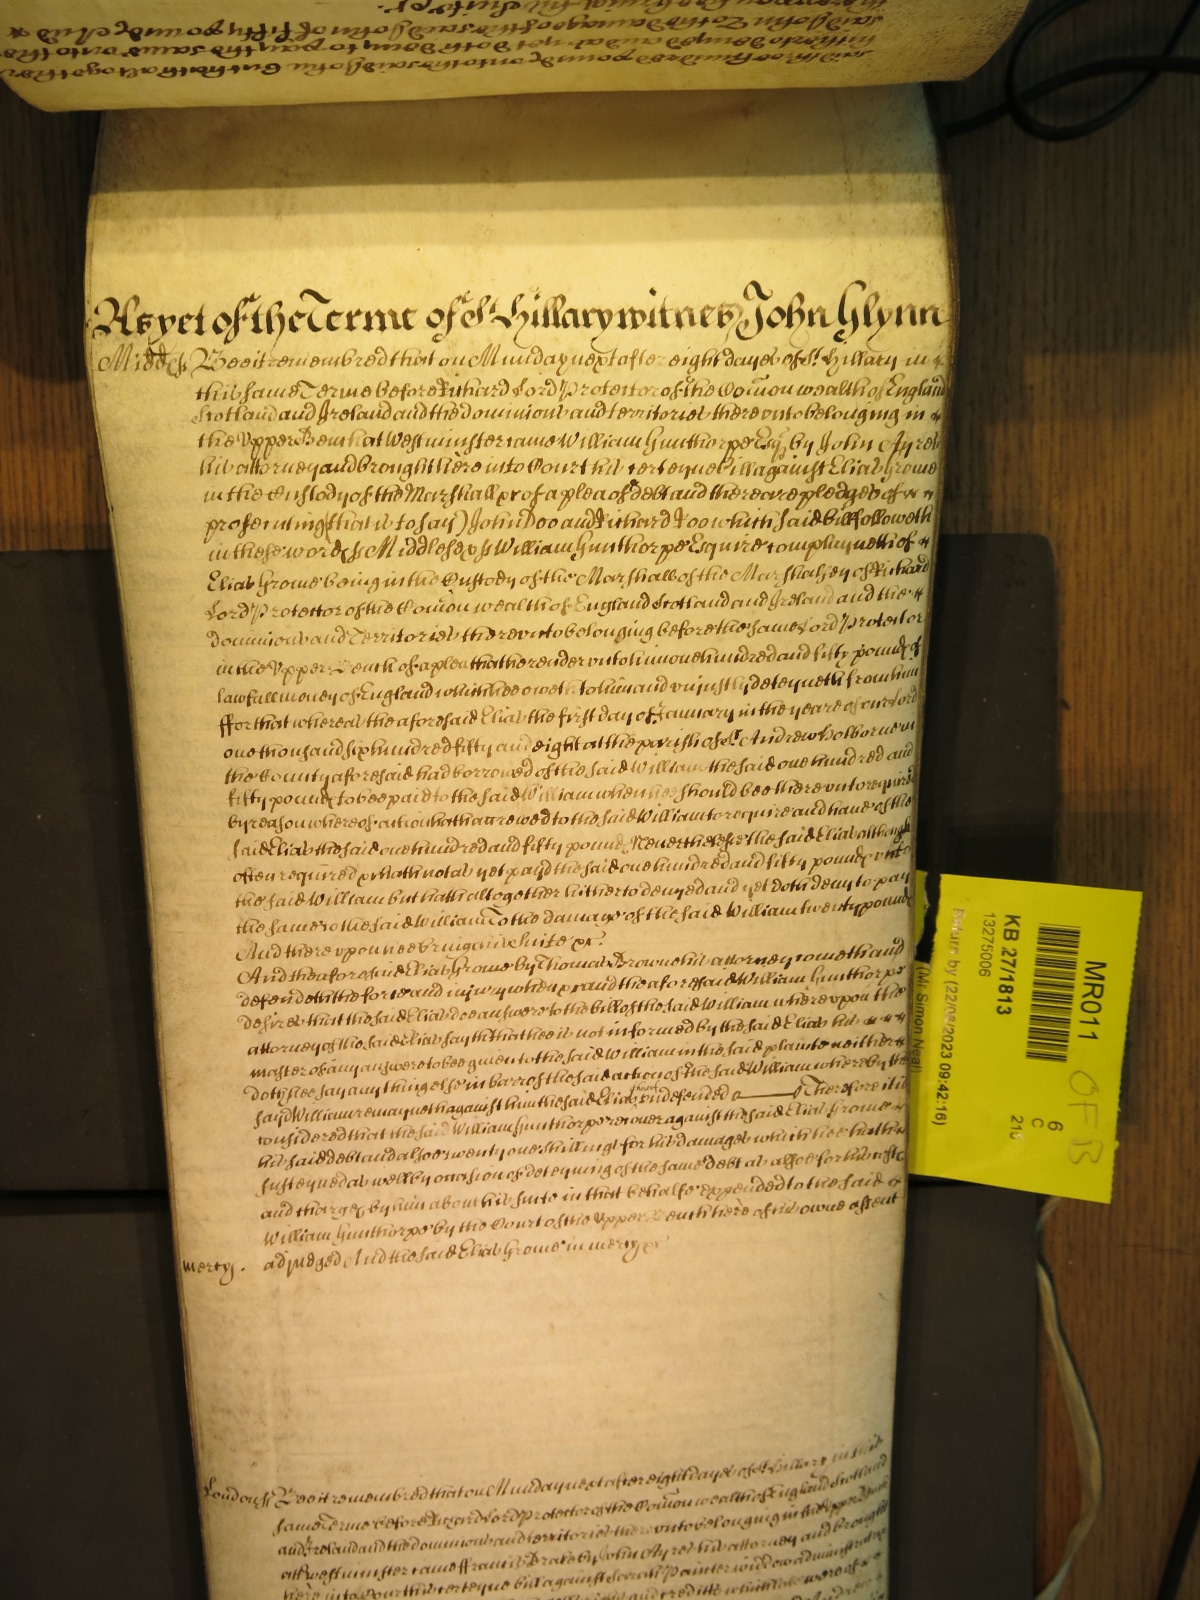 As yet of the Terme of St Hillary witnes John Glynn
Midds ss Bee it remembred that on Munday next after eight dayes of St. Hillary in
this same Terme before Richard Lord Protector of the Com̄on wealth of England
Scotland and Ireland and the dominions and territories therevnto belonging in
the Vpper Bench at Westminster came William Gunthorpe Esqr. by John Ayres
his attorney and brought here into Court his certeyne bill against Elias Grome
in the Custody of the Marshall &c of a plea of debt and there are pledges of
prosecuting (that is to say) John Doo and Richard Roo which said bill followeth
in these words ss Middlesex ss William Gunthorpe Esquire complayneth of
Elias Grome being in the Custody of the Marshall of the Marshalsey of Richard
Lord Protector of the Com̄on wealth of England Scotland and Ireland and the
dominions and Territories therevnto belonging before the same Lord Protector
in the Vpper Bench of a plea that he render vnto him one hundred and fifty pounds of
lawfull money of England which hee oweth to him and vniustly deteyneth from him
ffor that whereas the aforesaid Elias the first day of January in the yeare of our Lord
one thousand six hundred fifty and eight at the parish of St. Andrew Holborne in
the County aforesaid had borrowed of the said William the said one hundred and
fifty pounds to bee paid to the said William when hee should bee therevnto required
by reason whereof action hath accrewed to the said William to require and haue of the
said Elias the said one hundred and fifty pounds Neverthelesse the said Elias although
often required &c hath not as yet payd the said one hundred and fifty pounds vnto
the said William but hath altogether hitherto denyed and yet doth deny to pay
the same to the said William To the damage of the said William twenty pounds
And therevpon hee bringeth suite &c.
And the aforesaid Elias Grome by Thomas Browne his attorney cometh and
defendeth the force and iniury when &c and the aforesaid William Gunthorpe
desires that the said Elias doe answere to the bill of the said William wherevpon the
attorney of the said Elias sayth that hee is not informed by the said Elias his
master of any answere to bee given to the said William in the said plainte neither
doth hee say any thing else in barr of the said action of the said William whereby the
sayd William remayneth against him the said Elias thereof vndefended Therefore it is
considered that the said William Gunthorpe recover against the said Elias Grome
his said debt and alsoe twenty one shillings for his damages which hee hath
susteyned as well by occasion of deteyning of the same debt as alsoe for his costs
and charges by him about his suite in that behalfe expended to the said
William Gunthorpe by the Court of the Vpper Bench here of his owne assent
mercy. adjudged And the said Elias Grome in mercy &c
London ss Bee it remembred that on Munday next after eight dayes of St Hillary in this
same Terme before Richard Lord Protector of the Com̄on wealth of England Scotland
and Ireland and the dominions and territories therevnto belonging in the Vpper Bench
at Westminster came ffrancis Drake by John Ayres his attorney and brought
here into Court his certeyne bill against Sarah Painter widdow administratrix
MR011
KB 27/1813
13275006
Return by (22/06/2023 09:42:16)
(Mr Simon Neal)
6
C
OFB